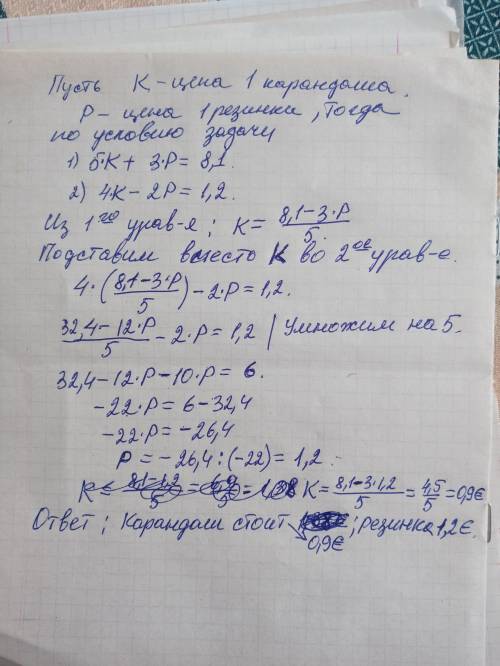 Пусть К - цена 1 карандаша.
Р - цена 1 резинки, Тогда
по условию задачи
1) 5·К + 3·Р = 8,1.
2) 4·К - 2Р = 1,2.
Из 1го урав-я; К = (8,1-3·Р)/5.
Подставим вместо К во 2ое урав-е.
4·((8,1-3·Р)/5) - 2·Р = 1,2.
(32,4-12·Р)/5 - 2·Р = 1,2 | Умножим на 5.
32,4-12·Р-10·Р = 6.
-22·Р = 6-32,4
-22·Р = -26,4
Р = -26,4:(-22) = 1,2.
К = (8,1-3·1,2)/5 = 4,5/5 = 0,9€
Ответ; Карандаш стоит 0,9€; резинка 1,2€.